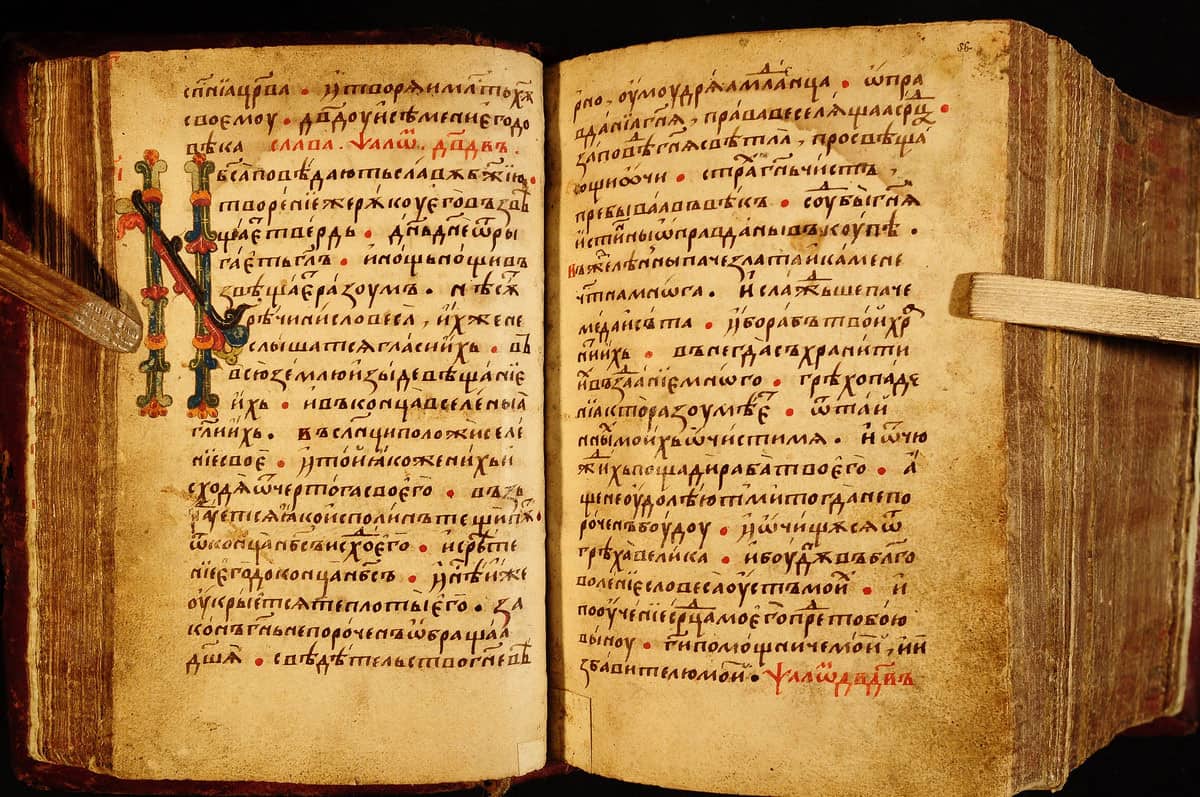 сп҃нїа цр҃ва • и҆ творѧи млⷭ҇ть хⷭ҇ꙋ
своемоу • дв҃доу и҆ сѣмени є҆го до
вѣка слава. Ѱалѡⷨ. дв҃двъ.
Нб҃са повѣдають славѫ бж҃їю •
творенїе же рѫкоу є҆го възвѣ
щаⷶ҇єⷮ твердь • дн҃ь дн҃є ѿры
гаєть гл҃ъ • и҆ нощь нощи въ
звѣщаєⷮ разоумъ • нѣ сѫ
рѣчи ни словеса , и҆хже не
слышатсѧ гласи и҆хь • въ
всю землю и҆зыде вѣщанїе
и҆хь • и въ конца вселеныѧ
гл҃и и҆хь • въ слн҃ци положи селе
нїе свое • и҆ той ꙗко женихь и҆
сходѧ ѿ чертога своєго • възⷣ
раⷣуетсѧ ꙗко исполинь тещи пѫⷮ •
ѿ конца нб҃съ исхоⷣ є҆го • и҆ срѣте
нїе є҆го до конца нб҃съ • и҆ нѣⷭ҇ иже
оукрыєтсѧ теплоты є҆го • за
конъ гн҃ь непорочен ѡбращаѧ
дш҃ѧ • свѣдѣтельство гн҃е вѣ
56
рно , оумоудрѧѧ младⷣенца • ѡпра
вданїа гнѧ҃ , права веселѧщаа срⷣца •
заповѣⷣ гнѧ҃ свѣтла , просвѣща
ющи ѡчи • страⷯ гн҃ь чисть ,
пребываѧ въ вѣкъ • соуⷣбы гнѧ҃
истинны ѡправданы въкоупѣ •
въжделѣнны паче злата и камене
чⷭ҇тна многа • И слаждьше паче
меда и съта • и҆бо рабъ твой хра
нить ѧ • вънегда съхранити
ѧ҆ въздаанїе много • грѣхопаде
нїа кто разоумѣєⷮ • ѿ тай
ныⷯ моихь ѡчисти мѧ • И ѿ чю
ждихь пощади раба твоєго • а҆
ще не оудолѣють ми тогда непо
рочень боудоу • и҆ ѡчищѫсѧ ѿ
грѣха велика • и боудѫⷮ въ блг҃о
воленїе словеса оустъ моиⷯ • и
пооученїе срⷣца моего преⷣ тобою
выноу • ги҃ помощниче мой , и҆ и
збавителю мой • Ѱалѡⷨ дв҃двъ